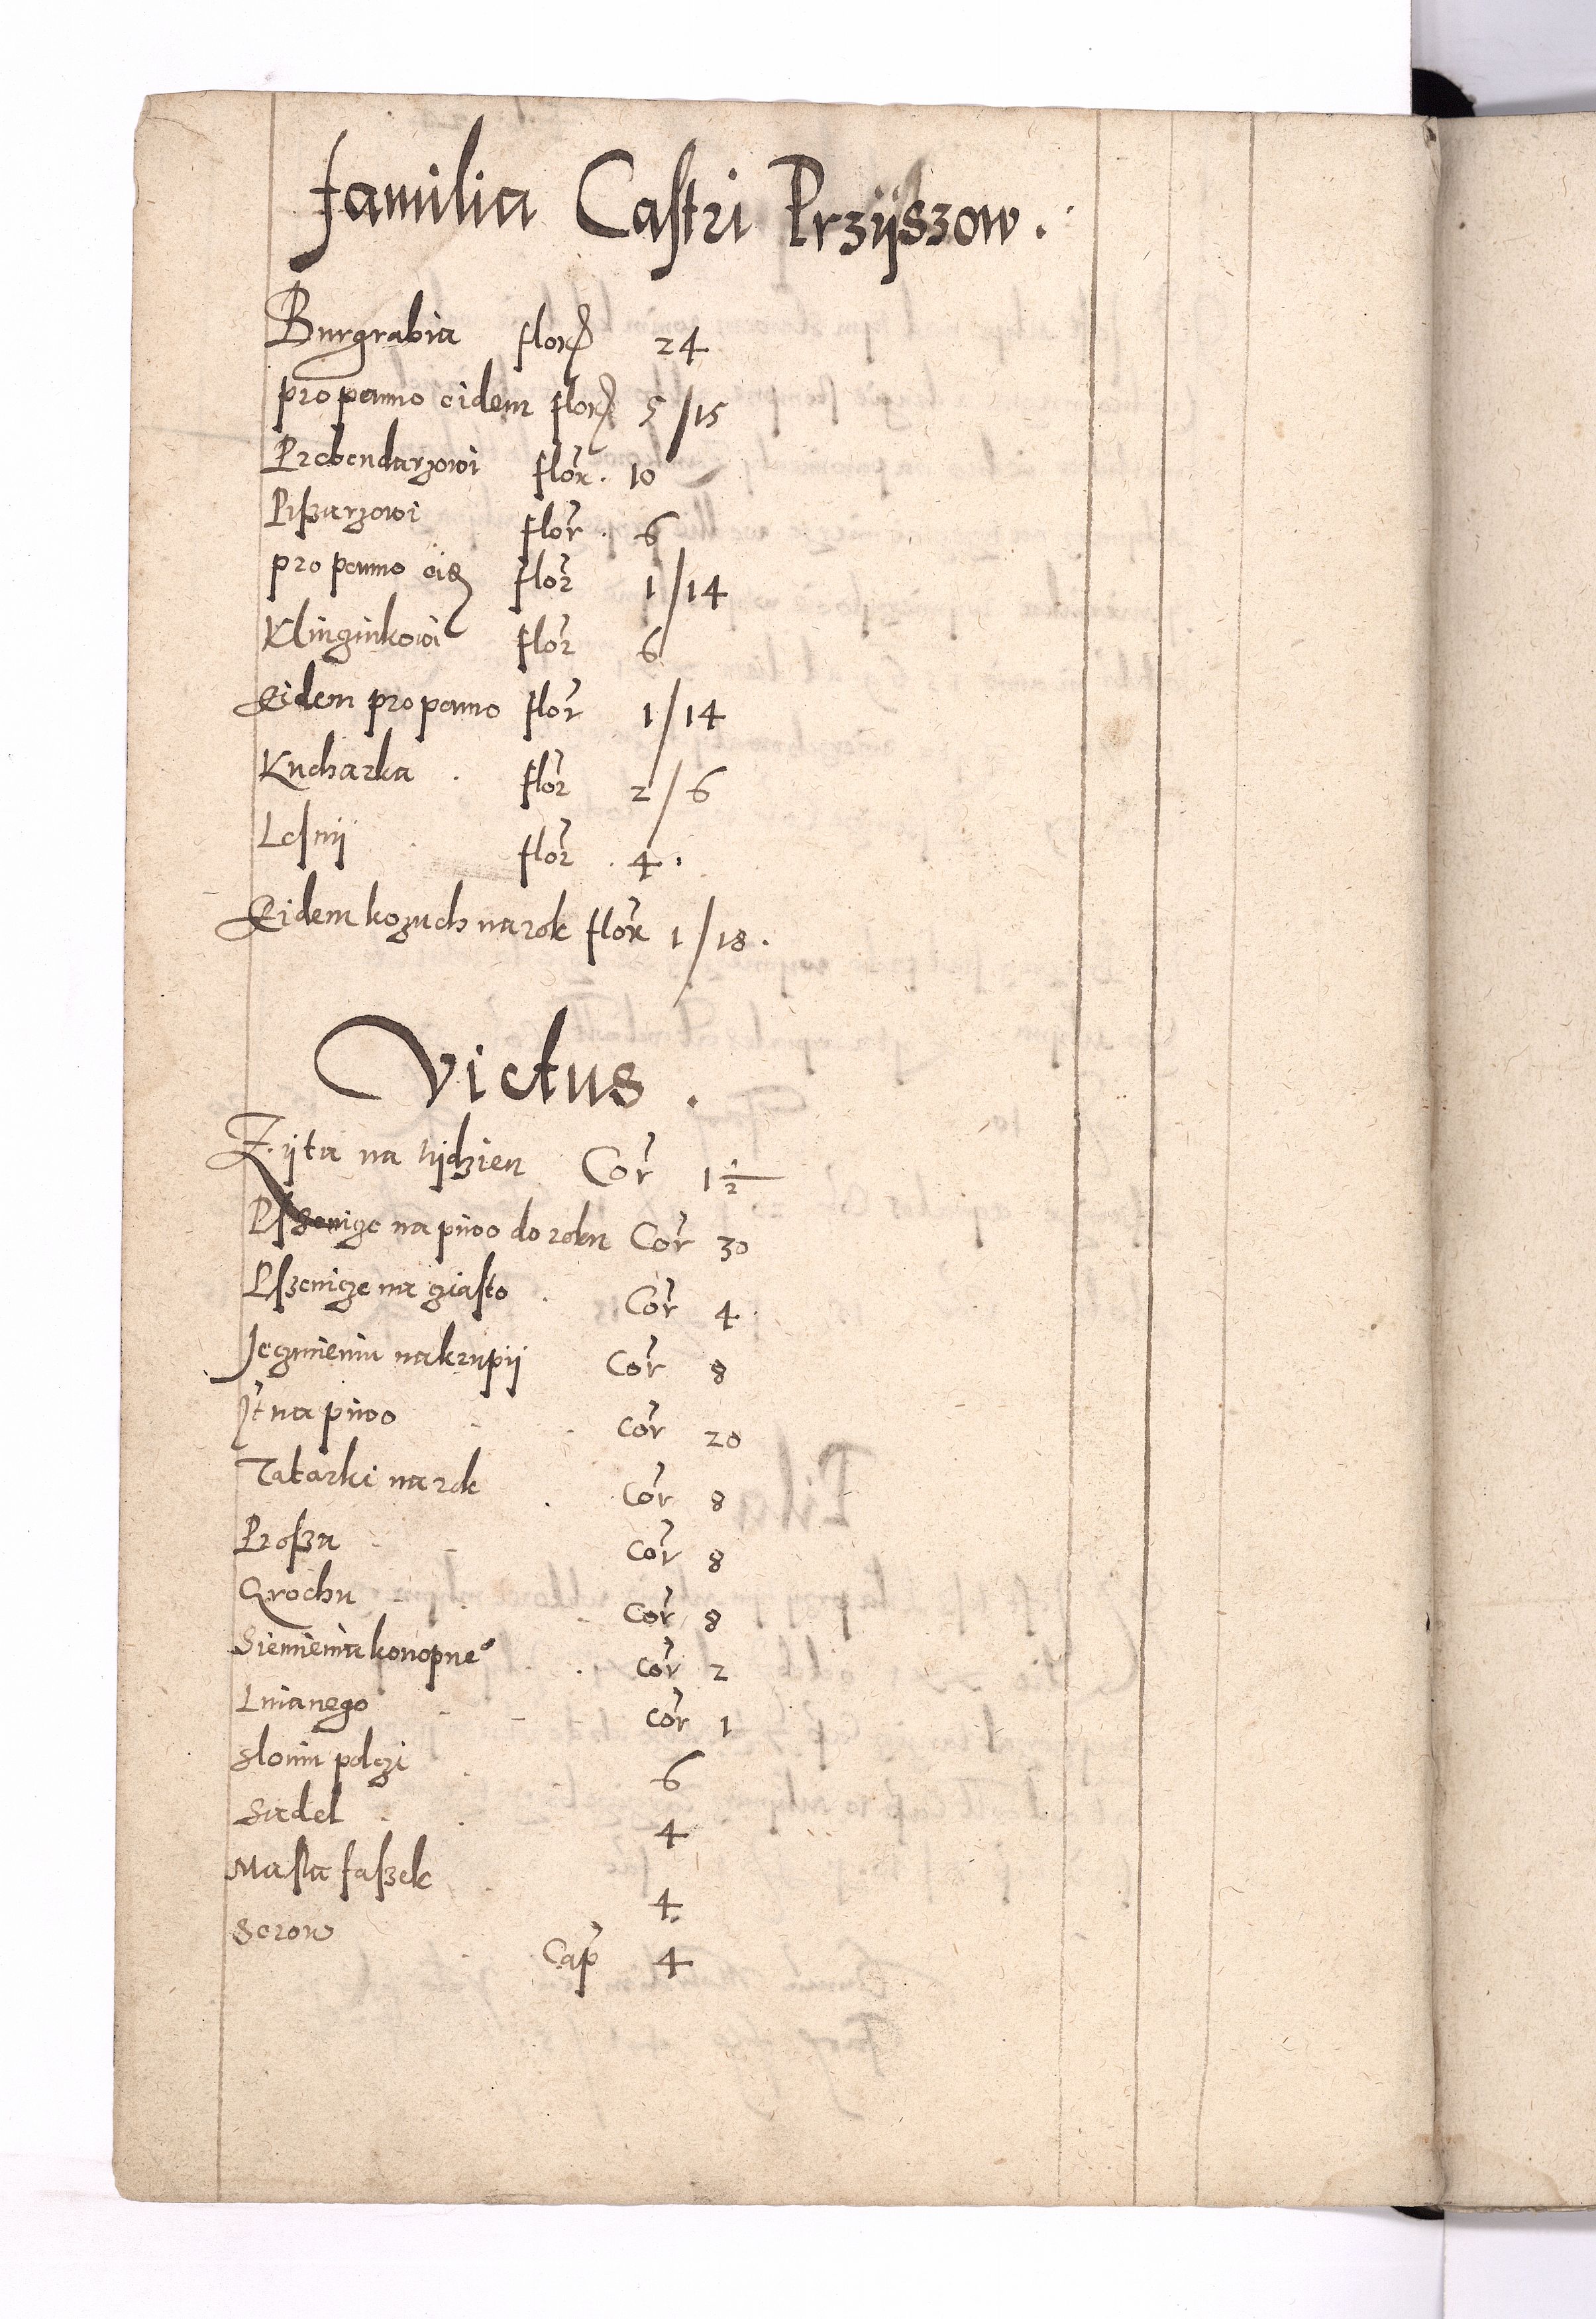 Familia Castri Przÿszow.
Burgrabia flor 24
pro panno eidem flor 5/15
Prebendarzowi flor. 10
Pißarzowi flor. 6
pro panno eid flor 1/14
Klinginkowi flor 6
Eidem pro panno flor 1/14
Kucharka. flor 2/6
Lesnÿ. flor. 4.
Eidem kozuch na rok flor 1/18.
Victus.
Zÿta na tÿdzien Cor 1 1/2
Pszenicze na piwo do roku Cor 30
Pszenicze na ziasto. Cor 4.
Jeczmieniu na krupÿ Cor 8
It na piwo Cor 20
Tatarki na rok. Cor 8
Proßa Cor 8
Grochu Cor 8
Siemienia konopne. Cor 2
Lnianego Cor 1
Slonin polczi 6
Sadel 4
Masla faßek 4
Serow Cap 4